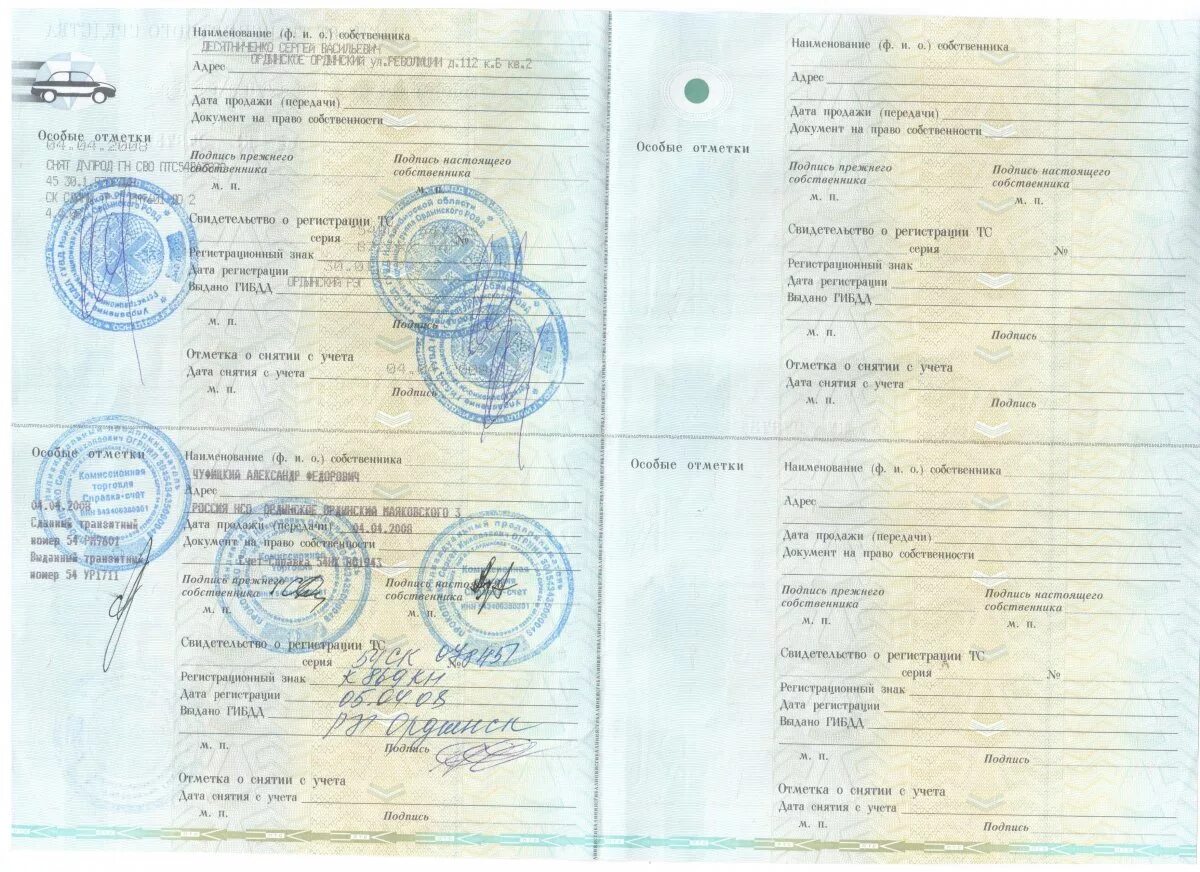 Наименование (ф. и. о.) собственника
ДЕСЯТНИЧЕНКО СЕРГЕЙ ВАСИЛЬЕВИЧ
Адрес ОРДЫНСКОЕ ОРДЫНСКИЙ ул.РЕВОЛЮЦИИ д.112 к.Б кв.2
Дата продажи (передачи)
Документ на право собственности
Особые отметки
04.04.2008
СНЯТ Д/ПРОД ГН СВО ПТС
45 30.1
Подпись прежнего собственника
Подпись настоящего собственника
м. п.
м. п.
Свидетельство о регистрации ТС
серия №
Регистрационный знак
Дата регистрации 30.0
Выдано ГИБДД ОРДЫНСКИЙ РЭГ
м. п.
Подпись
Отметка о снятии с учета
Дата снятия с учета 04.0
м. п.
Подпись
Особые отметки
04.04.2008
Сданный транзитный
номер 54 РН7601
Выданный транзитный
номер 54 УР1711
Комиссионная
торговля
Справка-счет
ИНН 543406380301
Наименование (ф. и. о.) собственника
ЧУФИЦКИЙ АЛЕКСАНДР ФЕДОРОВИЧ
Адрес
РОССИЯ НСО ОРДЫНСКОЕ ОРДЫНСКИЙ МАЯКОВСКОГО 3
Дата продажи (передачи) 04.04.2008
Документ на право собственности
Счет-Справка
Подпись прежнего собственника
Подпись настоящего собственника
м. п.
м. п.
Свидетельство о регистрации ТС
серия 54СК № 048457
Регистрационный знак К869КН
Дата регистрации 05.04.08
Выдано ГИБДД РЭГ Ордынск
м. п.
Подпись
Отметка о снятии с учета
Дата снятия с учета
м. п.
Подпись
Особые отметки
Наименование (ф. и. о.) собственника
Адрес
Дата продажи (передачи)
Документ на право собственности
Подпись прежнего собственника
Подпись настоящего собственника
м. п.
м. п.
Свидетельство о регистрации ТС
серия №
Регистрационный знак
Дата регистрации
Выдано ГИБДД
м. п.
Подпись
Отметка о снятии с учета
Дата снятия с учета
м. п.
Подпись
Особые отметки
Наименование (ф. и. о.) собственника
Адрес
Дата продажи (передачи)
Документ на право собственности
Подпись прежнего собственника
Подпись настоящего собственника
м. п.
м. п.
Свидетельство о регистрации ТС
серия №
Регистрационный знак
Дата регистрации
Выдано ГИБДД
м. п.
Подпись
Отметка о снятии с учета
Дата снятия с учета
м. п.
Подпись